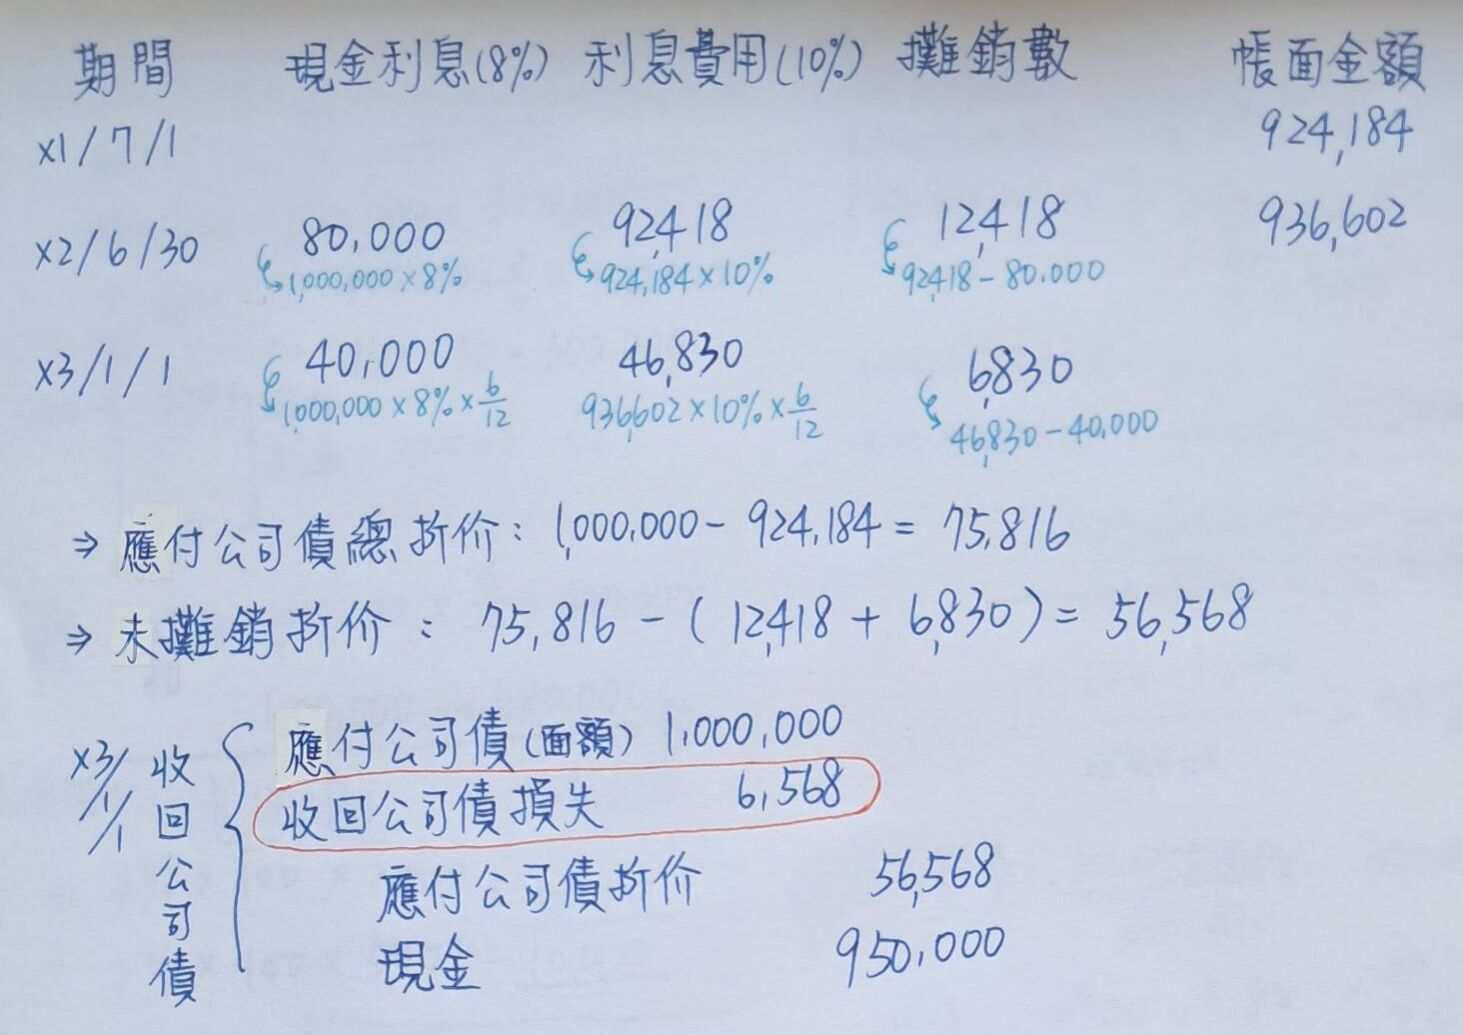 期間 現金利息(8%) 利息費用(10%) 攤銷數 帳面金額
x1/7/1 924,184
x2/6/30 80,000 92,418 12,418 936,602
1,000,000×8% 924,184×10% 92,418-80,000
x3/1/1 40,000 46,830 6,830
1,000,000×8%×6/12 936,602×10%×6/12 46,830-40,000
⇒ 應付公司債總折价:1,000,000-924,184=75,816
⇒ 未攤銷折价:75,816-(12,418+6,830)=56,568
x3/1/1 收回公司債
應付公司債(面額) 1,000,000
收回公司債損失 6,568
應付公司債折价 56,568
現金 950,000